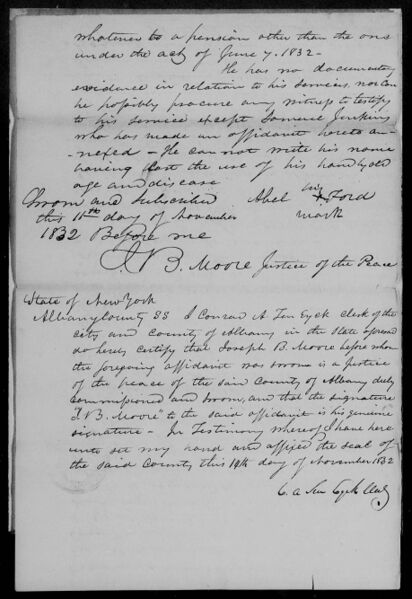 whatever to a pension other than the one
under the act of June 7. 1832 -
He has no documentary
evidence in relation to his services, nor can
he possibly procure any witness to testify
to his service except Jenkins
who has made an affidavit hereto an-
-nexed - He can not write his name
having lost the use of his hand by old
age and disease
Sworn and subscribed Abel his X Ford
this 11th day of November mark
1832 Before me
J. B. Moore Justice of the Peace
State of New York
Albany County SS I Conrad A Ten Eyck Clerk of the
City and County of Albany in the State aforesaid
do hereby certify that Joseph B. Moore before whom
the foregoing affidavit was sworn is a Justice
of the peace of the said County of Albany duly
commissioned and sworn, and that the signature
"J. B. Moore" to the said affidavit is his genuine
signature - In Testimony whereof I have here
unto set my hand and affixed the seal of
the said County this 19th day of November 1832
C. A Ten Eyck Clerk